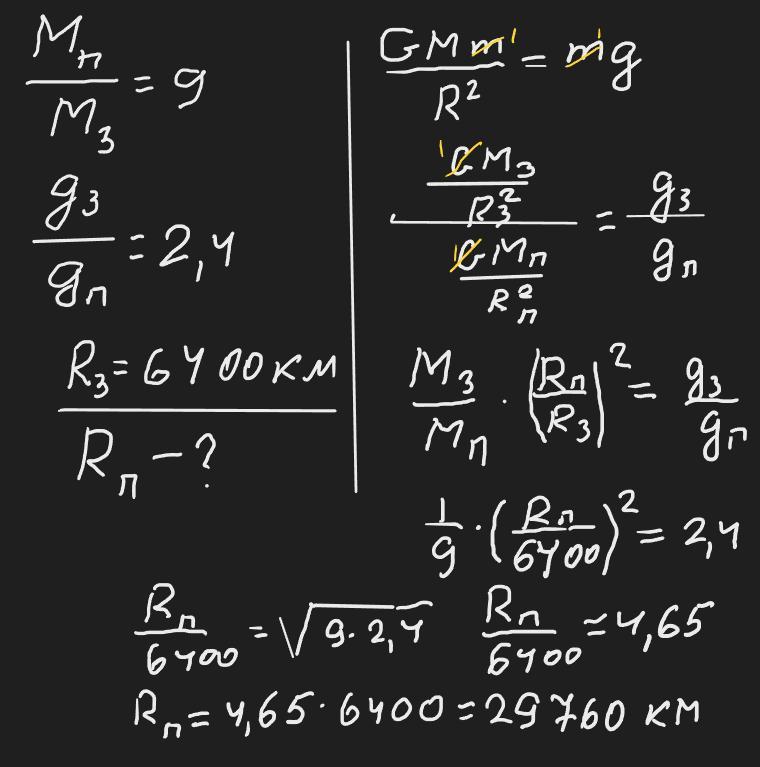 Mп/Mз = 9
gз/gп = 2,4
Rз = 6400 км
Rп - ?
GMm¹/R² = m¹g
(¹GMз/Rз²)/(¹GMп/Rп²) = gз/gп
Mз/Mп · (Rп/Rз)² = gз/gп
1/9 · (Rп/6400)² = 2,4
Rп/6400 = √9·2,4 Rп/6400 ≈ 4,65
Rп = 4,65·6400 = 29760 км